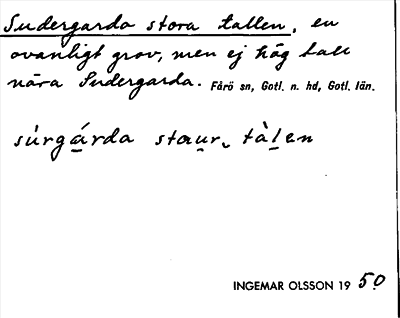 Sudergarda stora tallen, en
ovanligt grov, men ej hög tall
nära Sudergarda. Fårö sn, Gotl. n. hd, Gotl. län.
sùrgá̱rda stau̱r, tàḻen
INGEMAR OLSSON 19 50